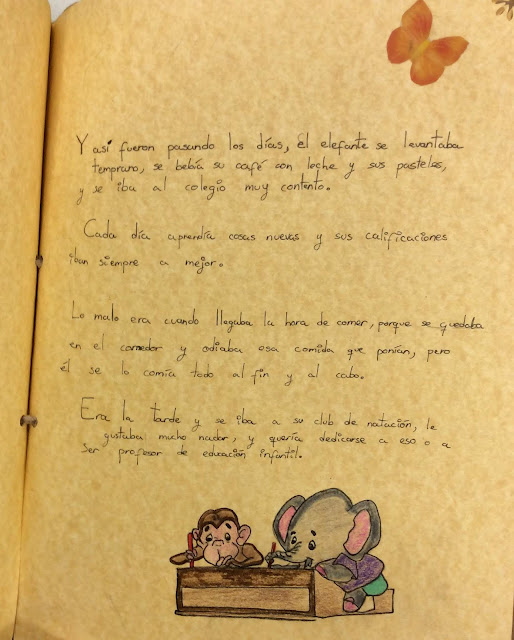 Y así fueron pasando los días, él elefante se levantaba
temprano, se bebía su café con leche y sus pasteles,
y se iba al colegio muy contento.
Cada día aprendía cosas nuevas y sus calificaciones
iban siempre a mejor.
Lo malo era cuando llegaba la hora de comer, porque se quedaba
en el comedor y odiaba esa comida que ponían, pero
él se lo comía todo al fin y al cabo.
Era la tarde y se iba a su club de natación, le
gustaba mucho nadar, y quería dedicarse a eso o a
ser profesor de educación infantil.